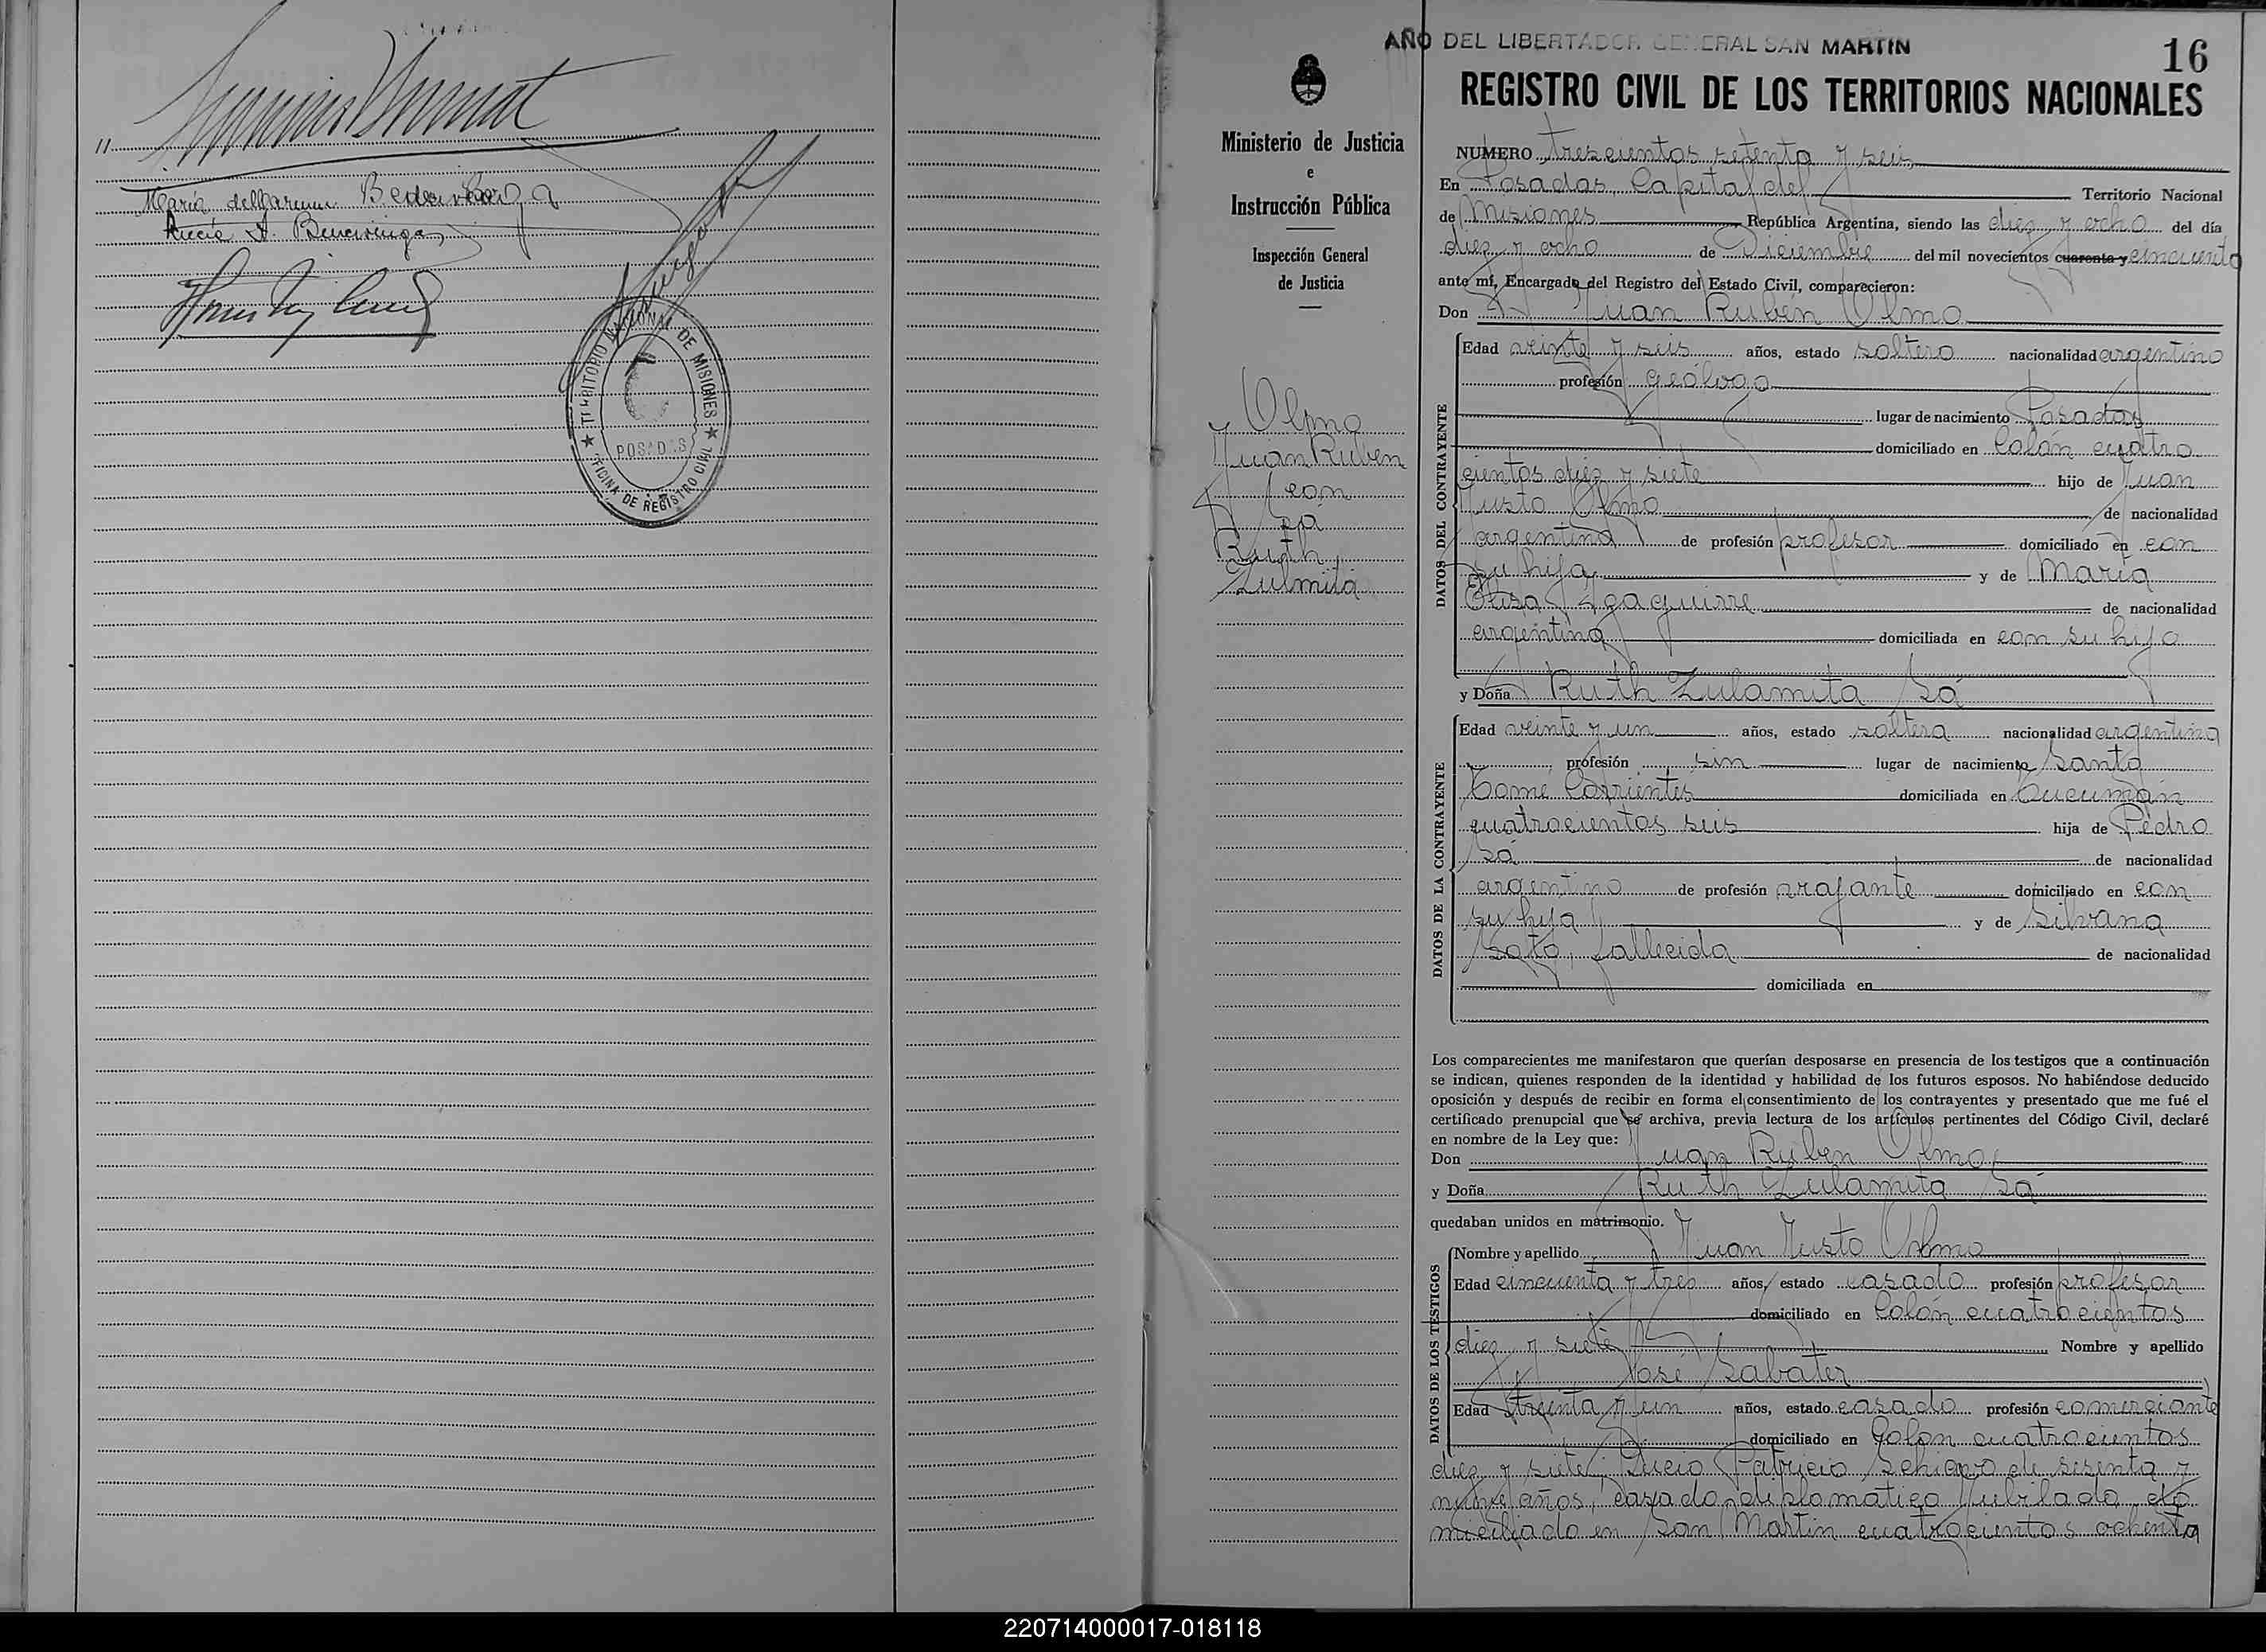 María del Carmen
TERRITORIO NACIONAL DE MISIONES
POSADAS
OFICINA DE REGISTRO CIVIL
AÑO DEL LIBERTADOR GENERAL SAN MARTIN
16
REGISTRO CIVIL DE LOS TERRITORIOS NACIONALES
Ministerio de Justicia
e
Instrucción Pública
Inspección General
de Justicia
Olmo
Juan Ruben
con
Sá
Ruth
Zulmita
NUMERO trescientos setenta y seis
En Posadas, Capital del Territorio Nacional
de Misiones República Argentina, siendo las diez y ocho del día
diez y ocho de Diciembre del mil novecientos cuarenta y cincuenta
ante mí, Encargado del Registro del Estado Civil, comparecieron:
Don Juan Rubén Olmo
DATOS DEL CONTRAYENTE
Edad veinte y seis años, estado soltero nacionalidad argentino
profesión geólogo
lugar de nacimiento Posadas
domiciliado en Colón cuatro
cientos diez y siete hijo de Juan
Justo Olmo de nacionalidad
argentina de profesión profesor domiciliado en con
su hijo y de María
Elisa de nacionalidad
argentina domiciliada en con su hijo
y Doña Ruth Zulamita Sá
DATOS DE LA CONTRAYENTE
Edad veinte y un años, estado soltera nacionalidad argentina
profesión sin lugar de nacimiento Santo
Tomé Corrientes domiciliada en Tucumán
cuatrocientos seis hija de Pedro
Sá de nacionalidad
argentino de profesión domiciliado en con
su hija y de Silvana
Soto, fallecida de nacionalidad
domiciliada en
Los comparecientes me manifestaron que querían desposarse en presencia de los testigos que a continuación
se indican, quienes responden de la identidad y habilidad de los futuros esposos. No habiéndose deducido
oposición y después de recibir en forma el consentimiento de los contrayentes y presentado que me fué el
certificado prenupcial que se archiva, previa lectura de los artículos pertinentes del Código Civil, declaré
en nombre de la Ley que:
Don Juan Ruben Olmo
y Doña Ruth Zulamita Sá
quedaban unidos en matrimonio.
DATOS DE LOS TESTIGOS
Nombre y apellido Juan Justo Olmo
Edad cincuenta y tres años, estado casado profesión profesor
domiciliado en Colón cuatrocientos
diez y siete Nombre y apellido
José Sabater
Edad treinta y un años, estado casado profesión comerciante
domiciliado en Colon cuatrocientos
diez y siete; Lucio Patricio Schiavo de sesenta y
nueve años, casado, diplomatico jubilado, do
miciliado en San Martin cuatrocientos ochenta
220714000017-018118